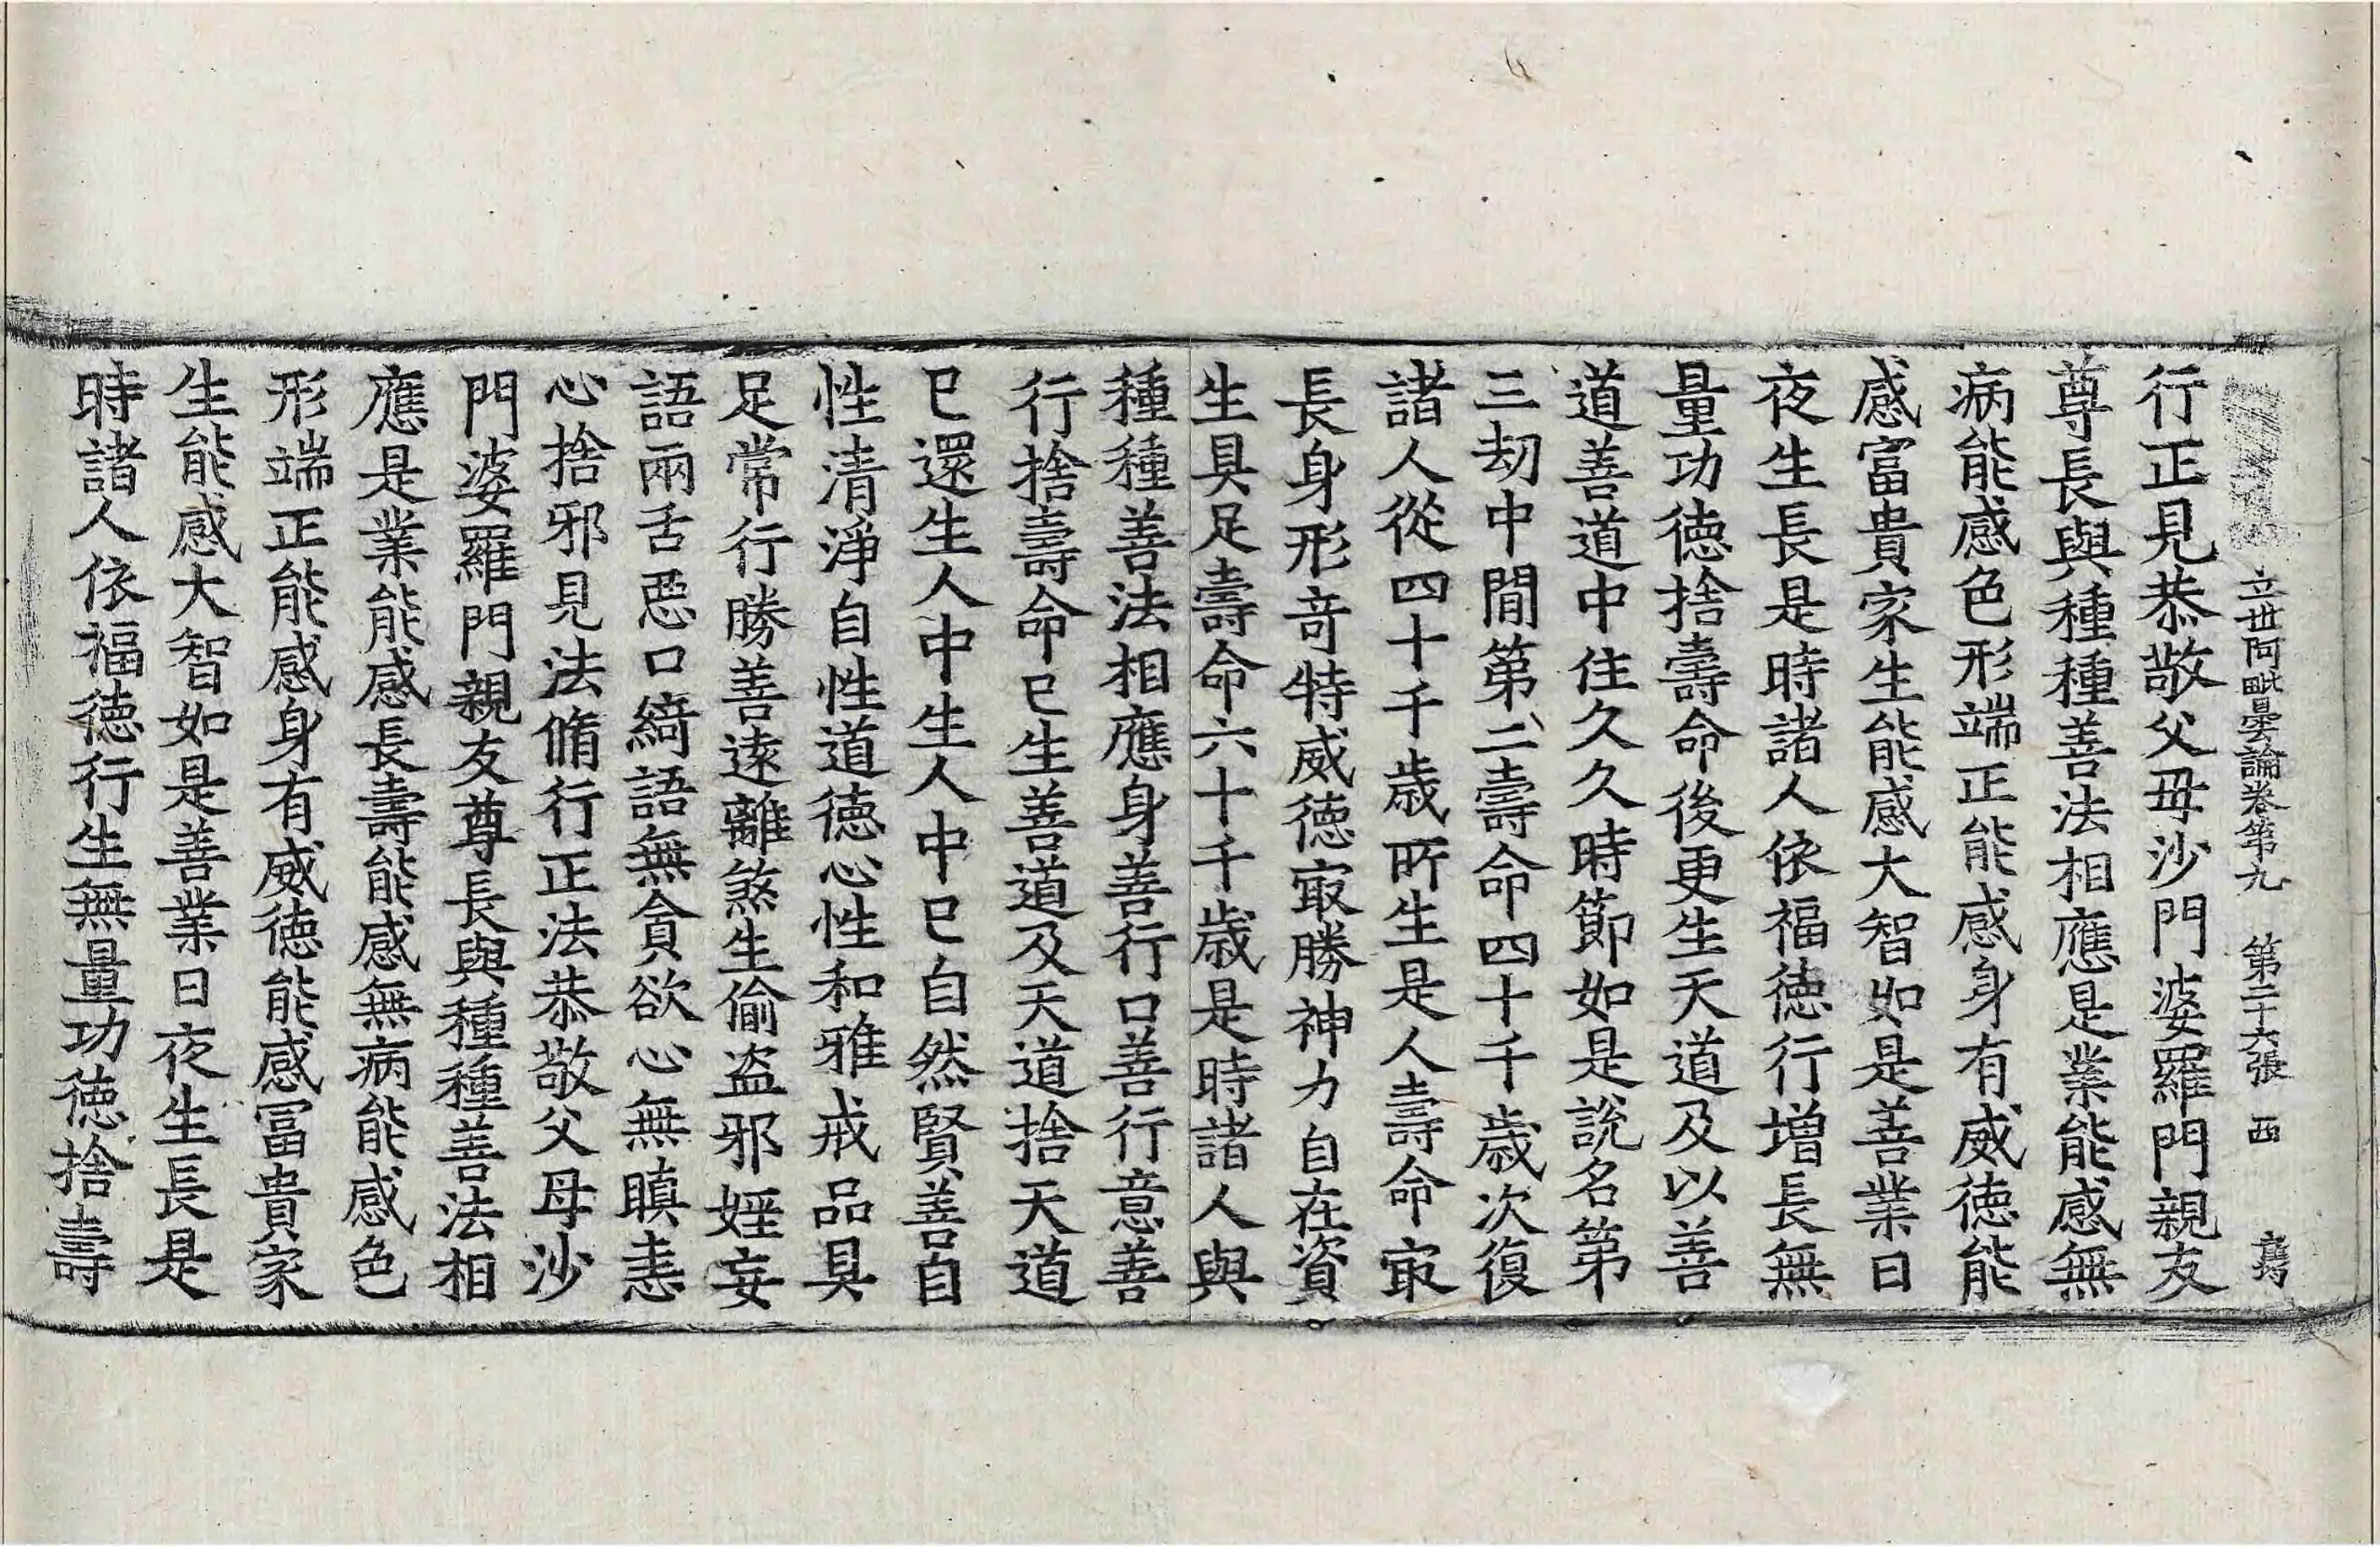 立世阿毗曇論卷第九　第二十六張　西
行正見恭敬父母沙門婆羅門親友
尊長與種種善法相應是業能感無
病能感色形端正能感身有威德能
感富貴家生能感大智如是善業日
夜生長是時諸人依福德行增長無
量功德捨壽命後更生天道及以善
道善道中住久久時節如是說名第
三劫中間第二壽命四十千歲次復
諸人從四十千歲所生是人壽命㝡
長身形奇特威德㝡勝神力自在資
生具足壽命六十千歲是時諸人與
種種善法相應身善行口善行意善
行捨壽命已生善道及天道捨天道
已還生人中生人中已自然賢善自
性清淨自性道德心性和雅戒品具
足常行勝善遠離煞生偷盜邪婬妄
語兩舌惡口綺語無貪欲心無瞋恚
心捨邪見法脩行正法恭敬父母沙
門婆羅門親友尊長與種種善法相
應是業能感長壽能感無病能感色
形端正能感身有威德能感冨貴家
生能感大智如是善業日夜生長是
時諸人依福德行生無量功德捨壽